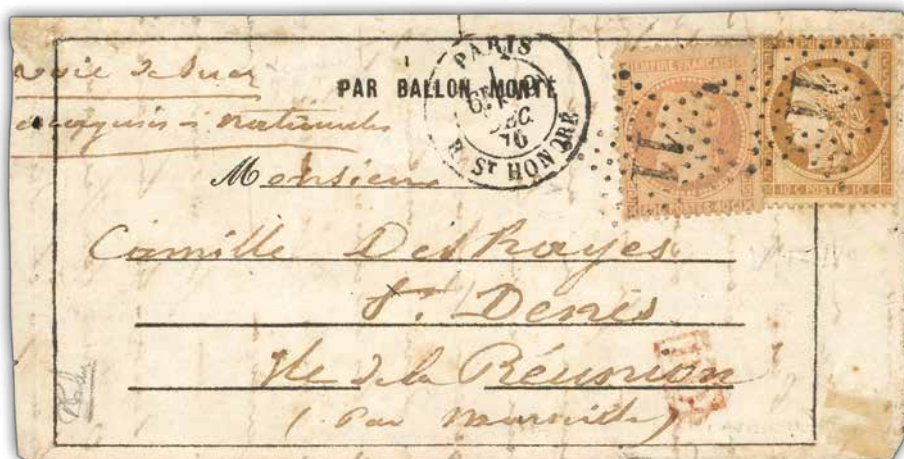 voie de Suez
PAR BALLON MONTÉ
PARIS
DEC.
70
R. ST HONORÉ
EMPIRE FRANÇAIS
10 C POSTES 10 C
Monsieur
Camille Des Rayes
St. Denis
Ile de la Réunion
(Par Marseille)